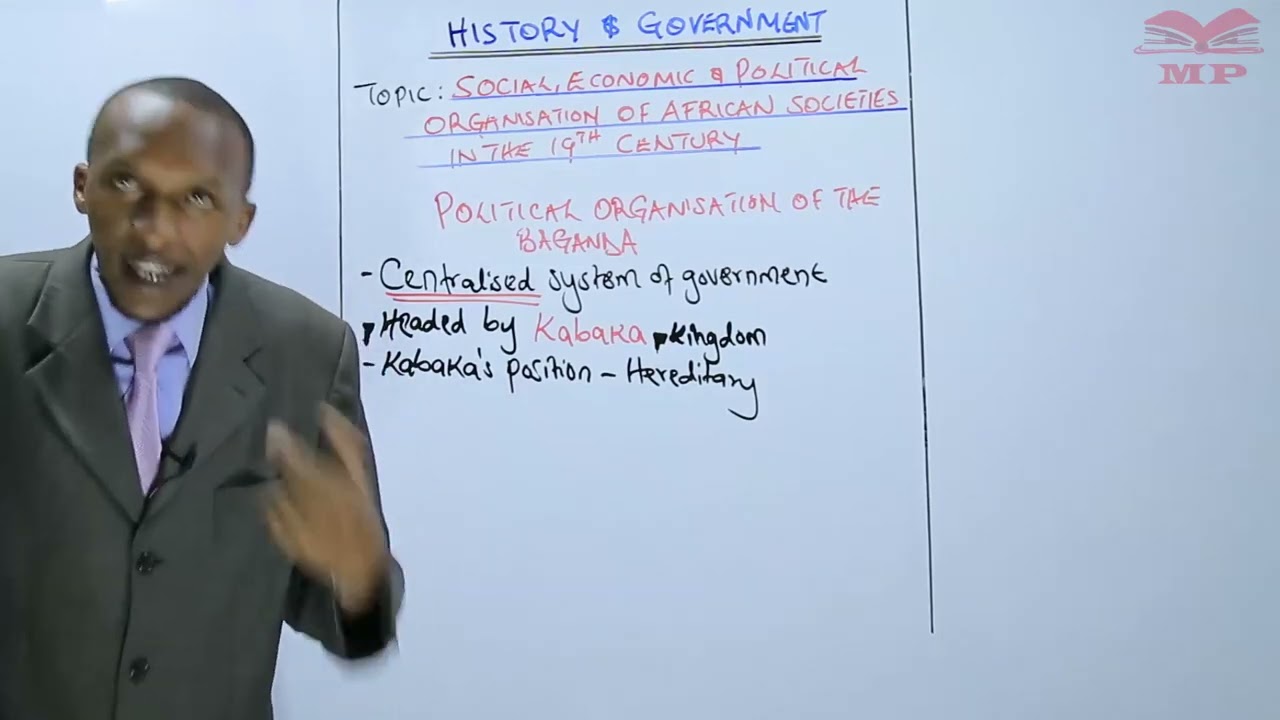 HISTORY & GOVERNMENT
TOPIC: SOCIAL, ECONOMIC & POLITICAL
ORGANISATION OF AFRICAN SOCIETIES
IN THE 19TH CENTURY
POLITICAL ORGANISATION OF THE
BAGANDA
- Centralised system of government
Headed by Kabaka Kingdom
- Kabaka's position - Hereditary
MP